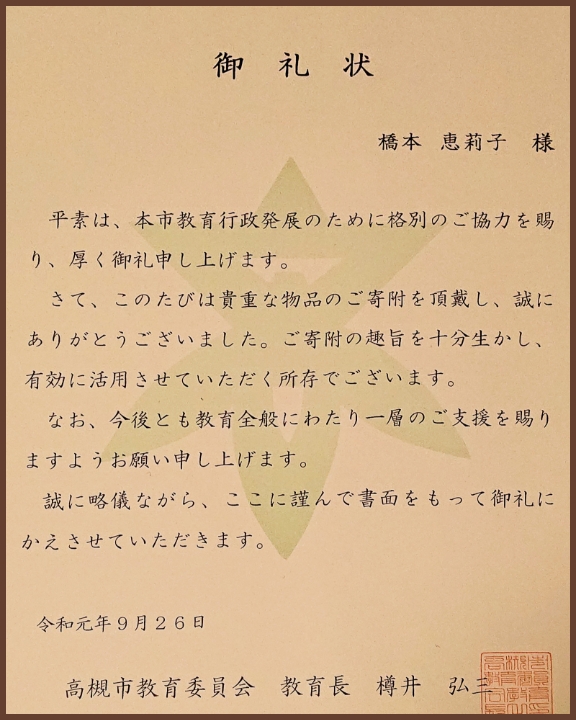 御 礼 状
橋本 恵莉子 様
平素は、本市教育行政発展のために格別のご協力を賜
り、厚く御礼申し上げます。
さて、このたびは貴重な物品のご寄附を頂戴し、誠に
ありがとうございました。ご寄附の趣旨を十分生かし、
有効に活用させていただく所存でございます。
なお、今後とも教育全般にわたり一層のご支援を賜り
ますようお願い申し上げます。
誠に略儀ながら、ここに謹んで書面をもって御礼に
かえさせていただきます。
令和元年９月２６日
高槻市教育委員会 教育長 樽井 弘三